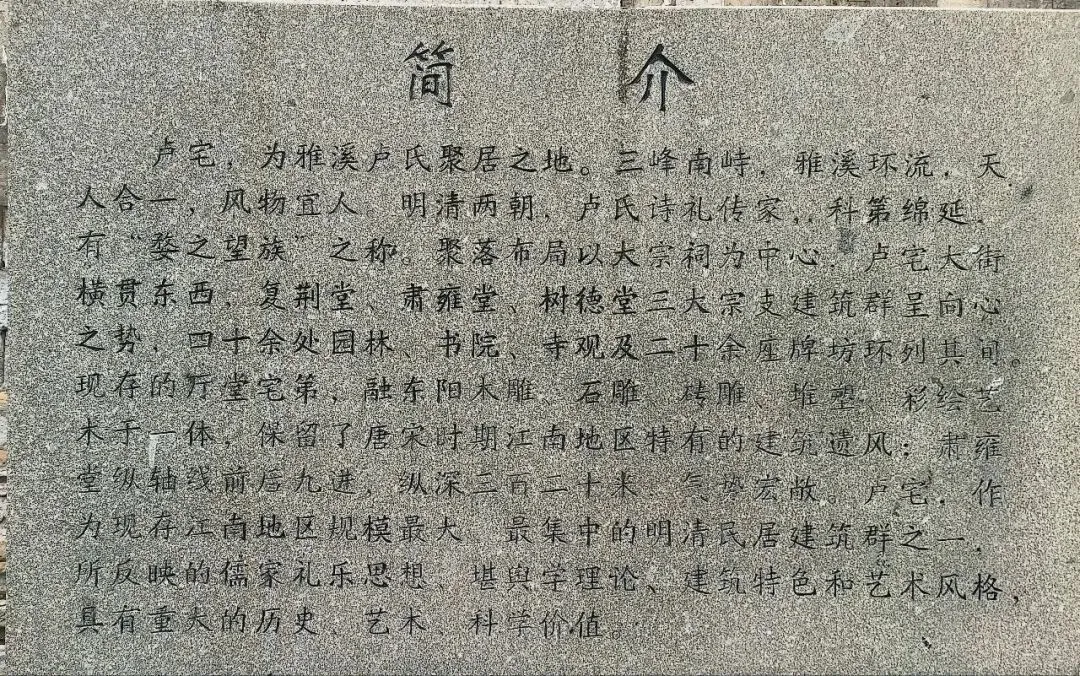 简介
卢宅，为雅溪卢氏聚居之地。三峰南峙，雅溪环流，天
人合一，风物宜人 明清两朝，卢氏诗礼传家，科第绵延，
有“婺之望族”之称。聚落布局以大宗祠为中心，卢宅大街
横贯东西，复荆堂、肃雍堂、树德堂三大宗支建筑群呈向心
之势，四十余处园林、书院、寺观及二十余座牌坊环列其间。
现存的厅堂宅第，融东阳木雕、石雕 砖雕 堆塑、彩绘艺
术于一体，保留了唐宋时期江南地区特有的建筑遗风；肃雍
堂纵轴线前后九进，纵深三百二十米 气势宏敞。卢宅，作
为现存江南地区规模最大 最集中的明清民居建筑群之一，
所反映的儒家礼乐思想 堪舆学理论、建筑特色和艺术风格，
具有重大的历史、艺术、科学价值。